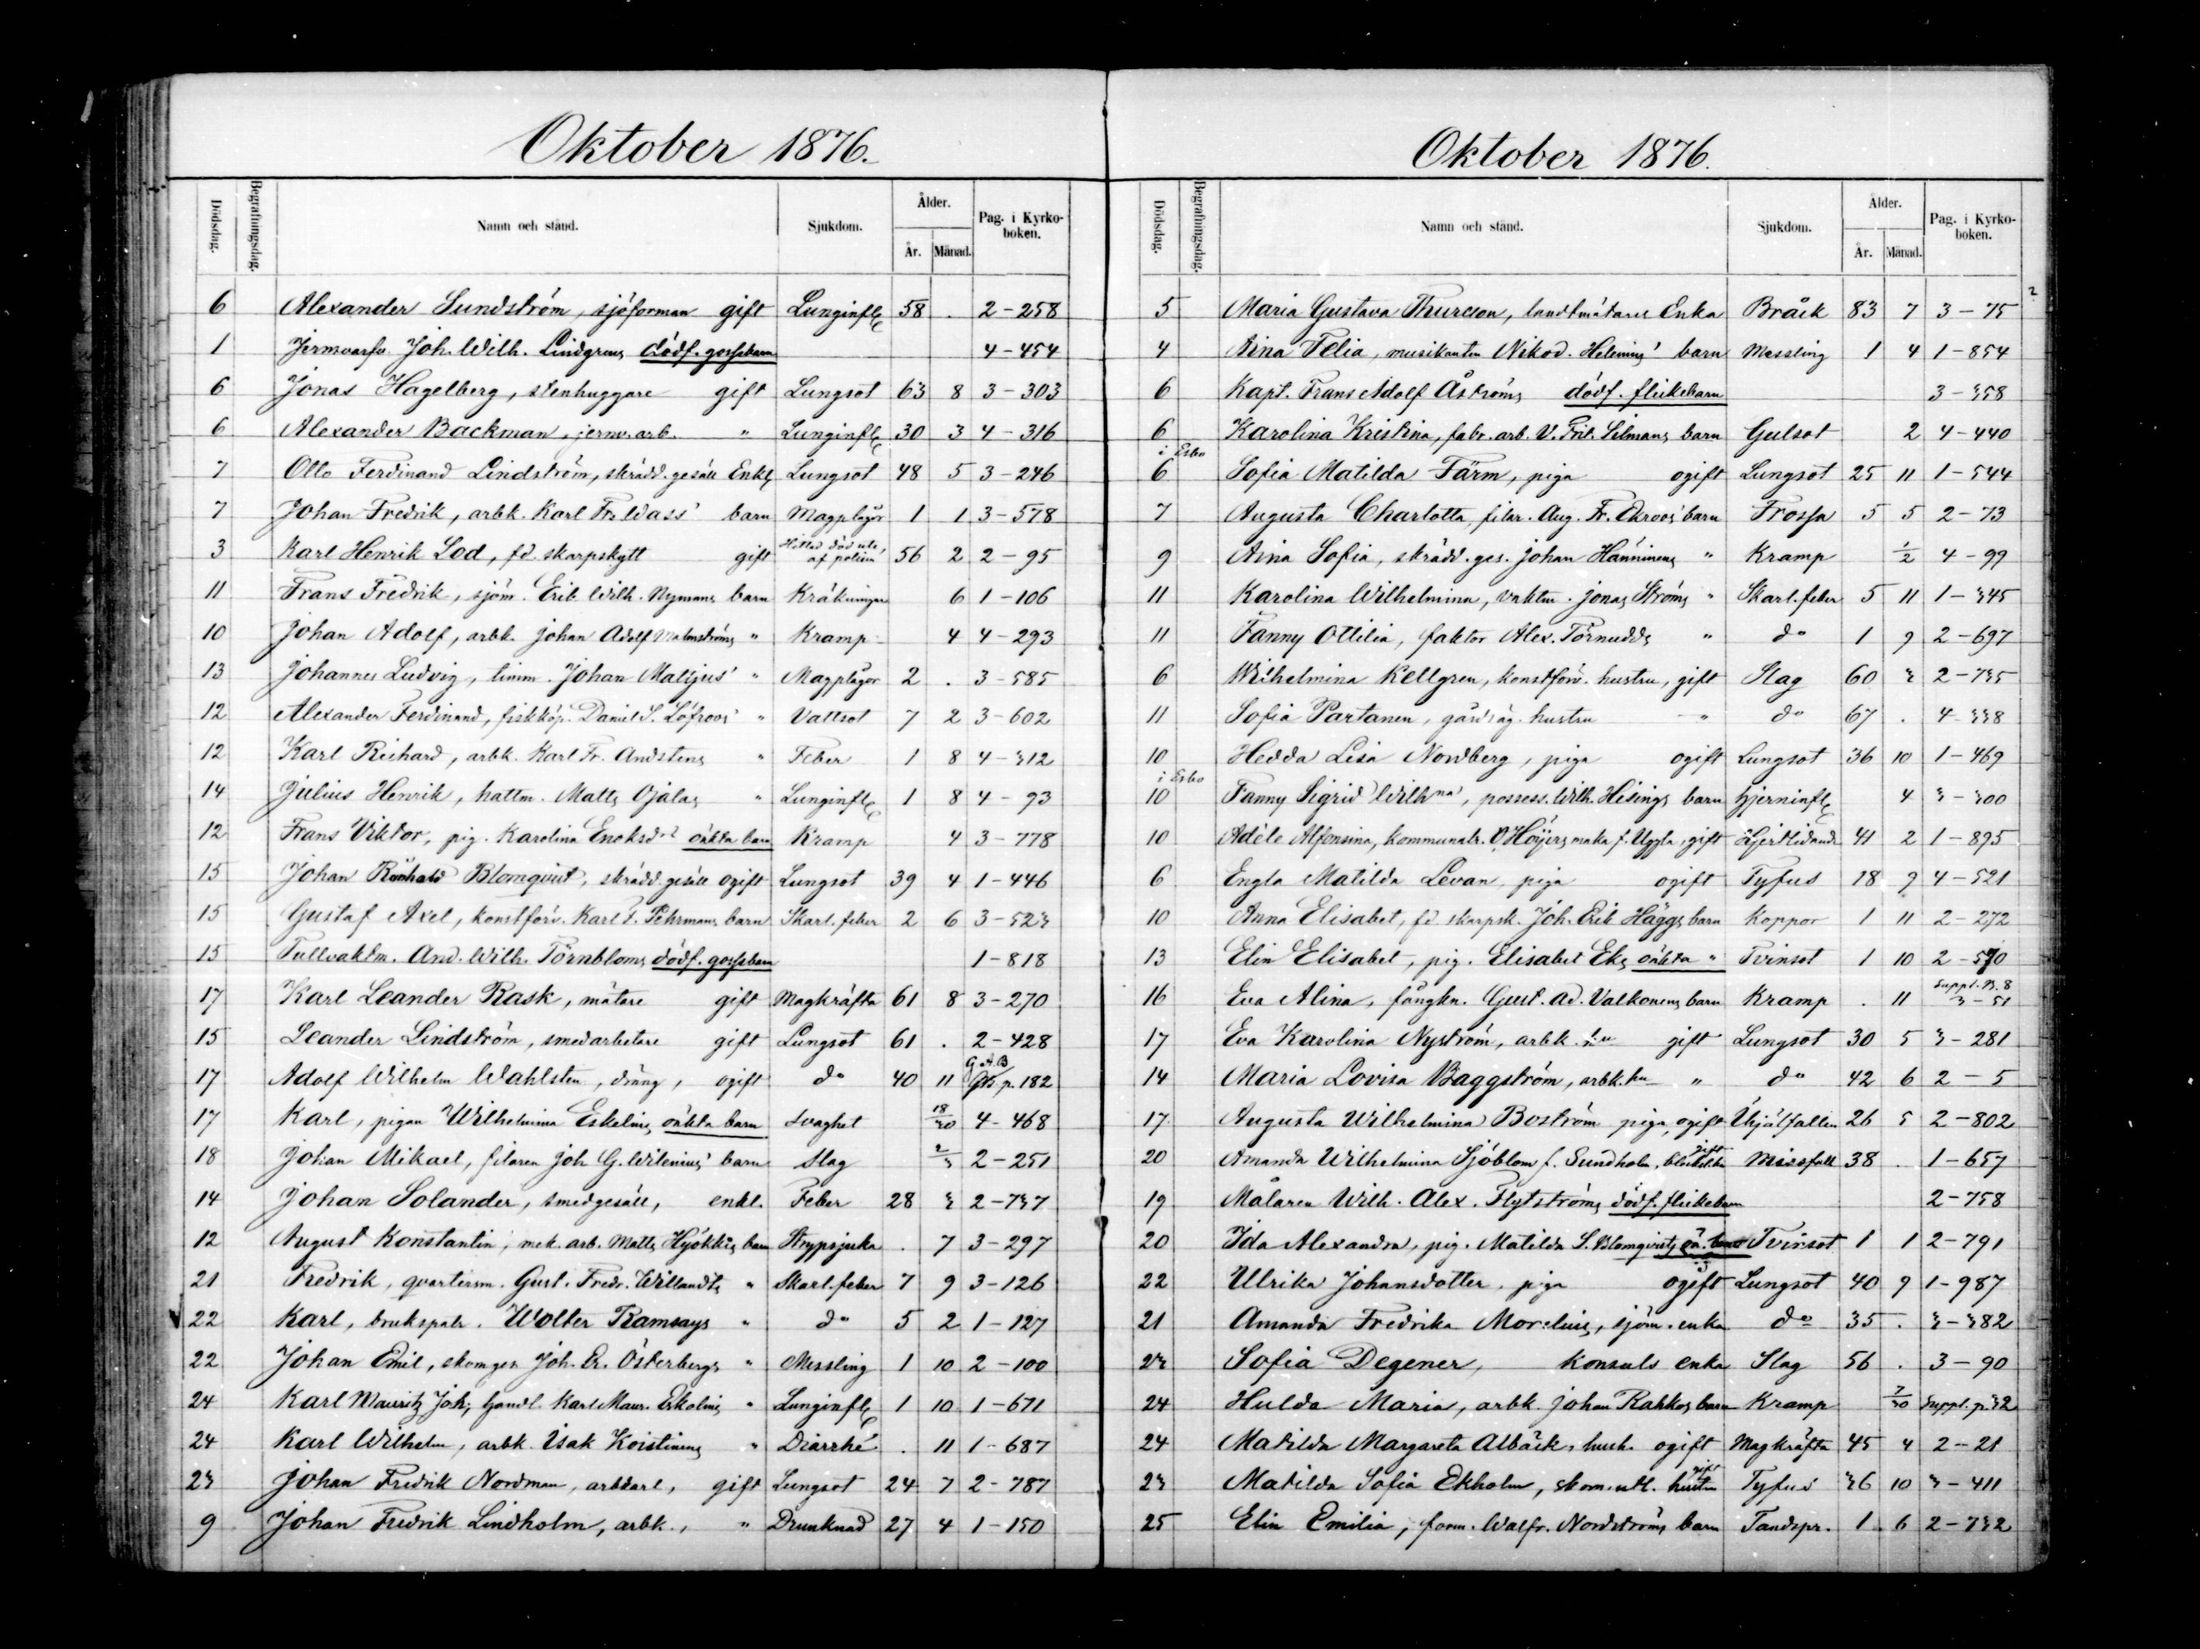 Oktober 1876.
Dödsdag. Begrafningsdag. Namn och stånd. Sjukdom. Ålder. År. Månad. Pag. i Kyrkoboken.
6 Alexander Sundström, sjöforman gift Lunginfl 58 . 2-258
1 Joh. Wilh. Lindgrens dödf. gossebarn 4-454
6 Jonas Hagelberg, stenhuggare gift Lungsot 63 8 3-303
6 Alexander Backman, jernv. arb. " Lunginfl 30 3 4-316
7 Otto Ferdinand Lindström, skrädd. gesäll Enkl Lungsot 48 5 3-246
7 Johan Fredrik, arbk. Karl Fr. barn Magplågor 1 1 3-578
3 Karl Henrik Lod, fd. skarpskytt gift Hittad död ute, af polisen 56 2 2-95
11 Frans Fredrik, sjöm. Erik Wilh. Nymans barn Kräkningar 6 1-106
10 Johan Adolf, arbk. Johan Adolf Malmströms " Kramp 4 4-293
13 Johannes Ludvig, timm. Johan " Magplågor 2 . 3-585
12 Alexander Ferdinand, fiskköp. Daniel S. Löfroos' " Vattsot 7 2 3-602
12 Karl Richard, arbk. Karl Fr. Andstens " Feber 1 8 4-312
14 Julius Henrik, hattm. Matts Ojalas " Lunginfl 1 8 4-93
12 Frans Viktor, pig. Karolina Enoksd. oäkta barn Kramp 4 3-778
15 Johan Blomqvist, skrädd. gesäll ogift Lungsot 39 4 1-446
15 Gustaf Axel, konstförv. Karl F. Pehrmans barn Skarl. feber 2 6 3-523
15 Tullvaktm. And. Wilh. Törnbloms dödf. gossebarn 1-818
17 Karl Leander Rask, mätare gift Magkräfta 61 8 3-270
15 Leander Lindström, smedarbetare gift Lungsot 61 . 2-428
17 Adolf Wilhelm Wahlsten, dräng, ogift do 40 11 G.A.B p. 182
17 Karl, pigan Wilhelmina Eskelins oäkta barn Svaghet 18/30 4-468
18 Johan Mikael, filaren Joh. G. Wilenius' barn Slag 2/3 2-251
14 Johan Solander, smedgesäll, enkl. Feber 28 3 2-737
12 August Konstantin, mek. arb. Matts barn Strypsjuka . 7 3-297
21 Fredrik, qvartersm. Gust. Fredr. Willandts " Skarl. feber 7 9 3-126
22 Karl, brukspatr. Wolter Ramsays " do 5 2 1-127
22 Johan Emil, skomgen Joh. Er. Österbergs " Messling 1 10 2-100
24 Karl Mauritz Joh, handl. Karl Maur. Ekholms " Lunginfl 1 10 1-671
24 Karl Wilhelm, arbk. Isak Koistinens " Diarrhé . 11 1-687
23 Johan Fredrik Nordman, arbkarl, gift Lungsot 24 7 2-787
9 Johan Fredrik Lindholm, arbk., " Drunknad 27 4 1-150
Oktober 1876.
Dödsdag. Begrafningsdag. Namn och stånd. Sjukdom. Ålder. År. Månad. Pag. i Kyrkoboken.
5 Maria Gustava Thureson, landtmätares Enka Bråck 83 7 3-75
4 Aina Felia, musikanten Nikod. Helenius' barn Messling 1 4 1-854
6 Kapt. Frans Adolf Åströms dödf. flickebarn 3-358
6 Karolina Kristina, fabr. arb. V. Frit. Silmans barn Gulsot 2 4-440
i Esbo
6 Sofia Matilda Färm, piga ogift Lungsot 25 11 1-544
7 Augusta Charlotta, filar. Aug. Fr. Ekroos' barn Frossa 5 5 2-73
9 Aina Sofia, skrädd. ges. Johan Hänninens " Kramp 1/2 4-99
11 Karolina Wilhelmina, vaktm. Jonas Ströms " Skarl. feber 5 11 1-345
11 Fanny Ottilia, faktor Alex. Törnudds " do 1 9 2-697
6 Wilhelmina Kellgren, konstförv. hustru, gift Slag 60 3 2-735
11 Sofia Partanen, gårdsäg. hustru " do 67 . 4-338
10 Hedda Lisa Nordberg, piga ogift Lungsot 36 10 1-469
i Esbo
10 Fanny Sigrid Wilhna, possess. Wilh. Hisings barn hjerninfl 4 3-300
10 Adèle Alfonsina, kommunalr. O. Höijers maka f. Uggla, gift Hjertlidande 41 2 1-895
6 Engla Matilda Levan, piga ogift Tyfus 18 9 4-521
10 Anna Elisabet, fd. skarpsk. Joh. Erik Häggs barn Koppor 1 11 2-272
13 Elin Elisabet, pig. Elisabet Eks oäkta " Tvinsot 1 10 2-570
16 Eva Alina, fångkn. Gust. Ad. Valkonens barn Kramp . 11 Suppl. B. 8 3-51
17 Eva Karolina Nyström, arbk. hu gift Lungsot 30 5 3-281
14 Maria Lovisa Baggström, arbk. hu " do 42 6 2-5
17 Augusta Wilhelmina Boström piga, ogift Ihjälfallen 26 5 2-802
20 Amanda Wilhelmina Sjöblom f. Sundholm, gift Missfall 38 . 1-657
19 Målaren Wilh. Alex. Flytströms dödf. flickebarn 2-758
20 Ida Alexandra, pig. Matilda S. Blomqvists oä. barn Tvinsot 1 1 2-791
22 Ulrika Johansdotter, piga ogift Lungsot 40 9 1-987
21 Amanda Fredrika Morelius, sjöm. enka do 35 . 3-382
23 Sofia Degener, konsuls enka Slag 56 . 3-90
24 Hulda Maria, arbk. Johan Rahkos barn Kramp 7/30 Suppl. p. 32
24 Matilda Margareta Albäck, hush. ogift Magkräfta 45 4 2-21
23 Matilda Sofia Ekholm, skom. hustru gift Tyfus 36 10 3-411
25 Elin Emilia, form. Walfr. Nordströms barn Tandspr. 1 6 2-732